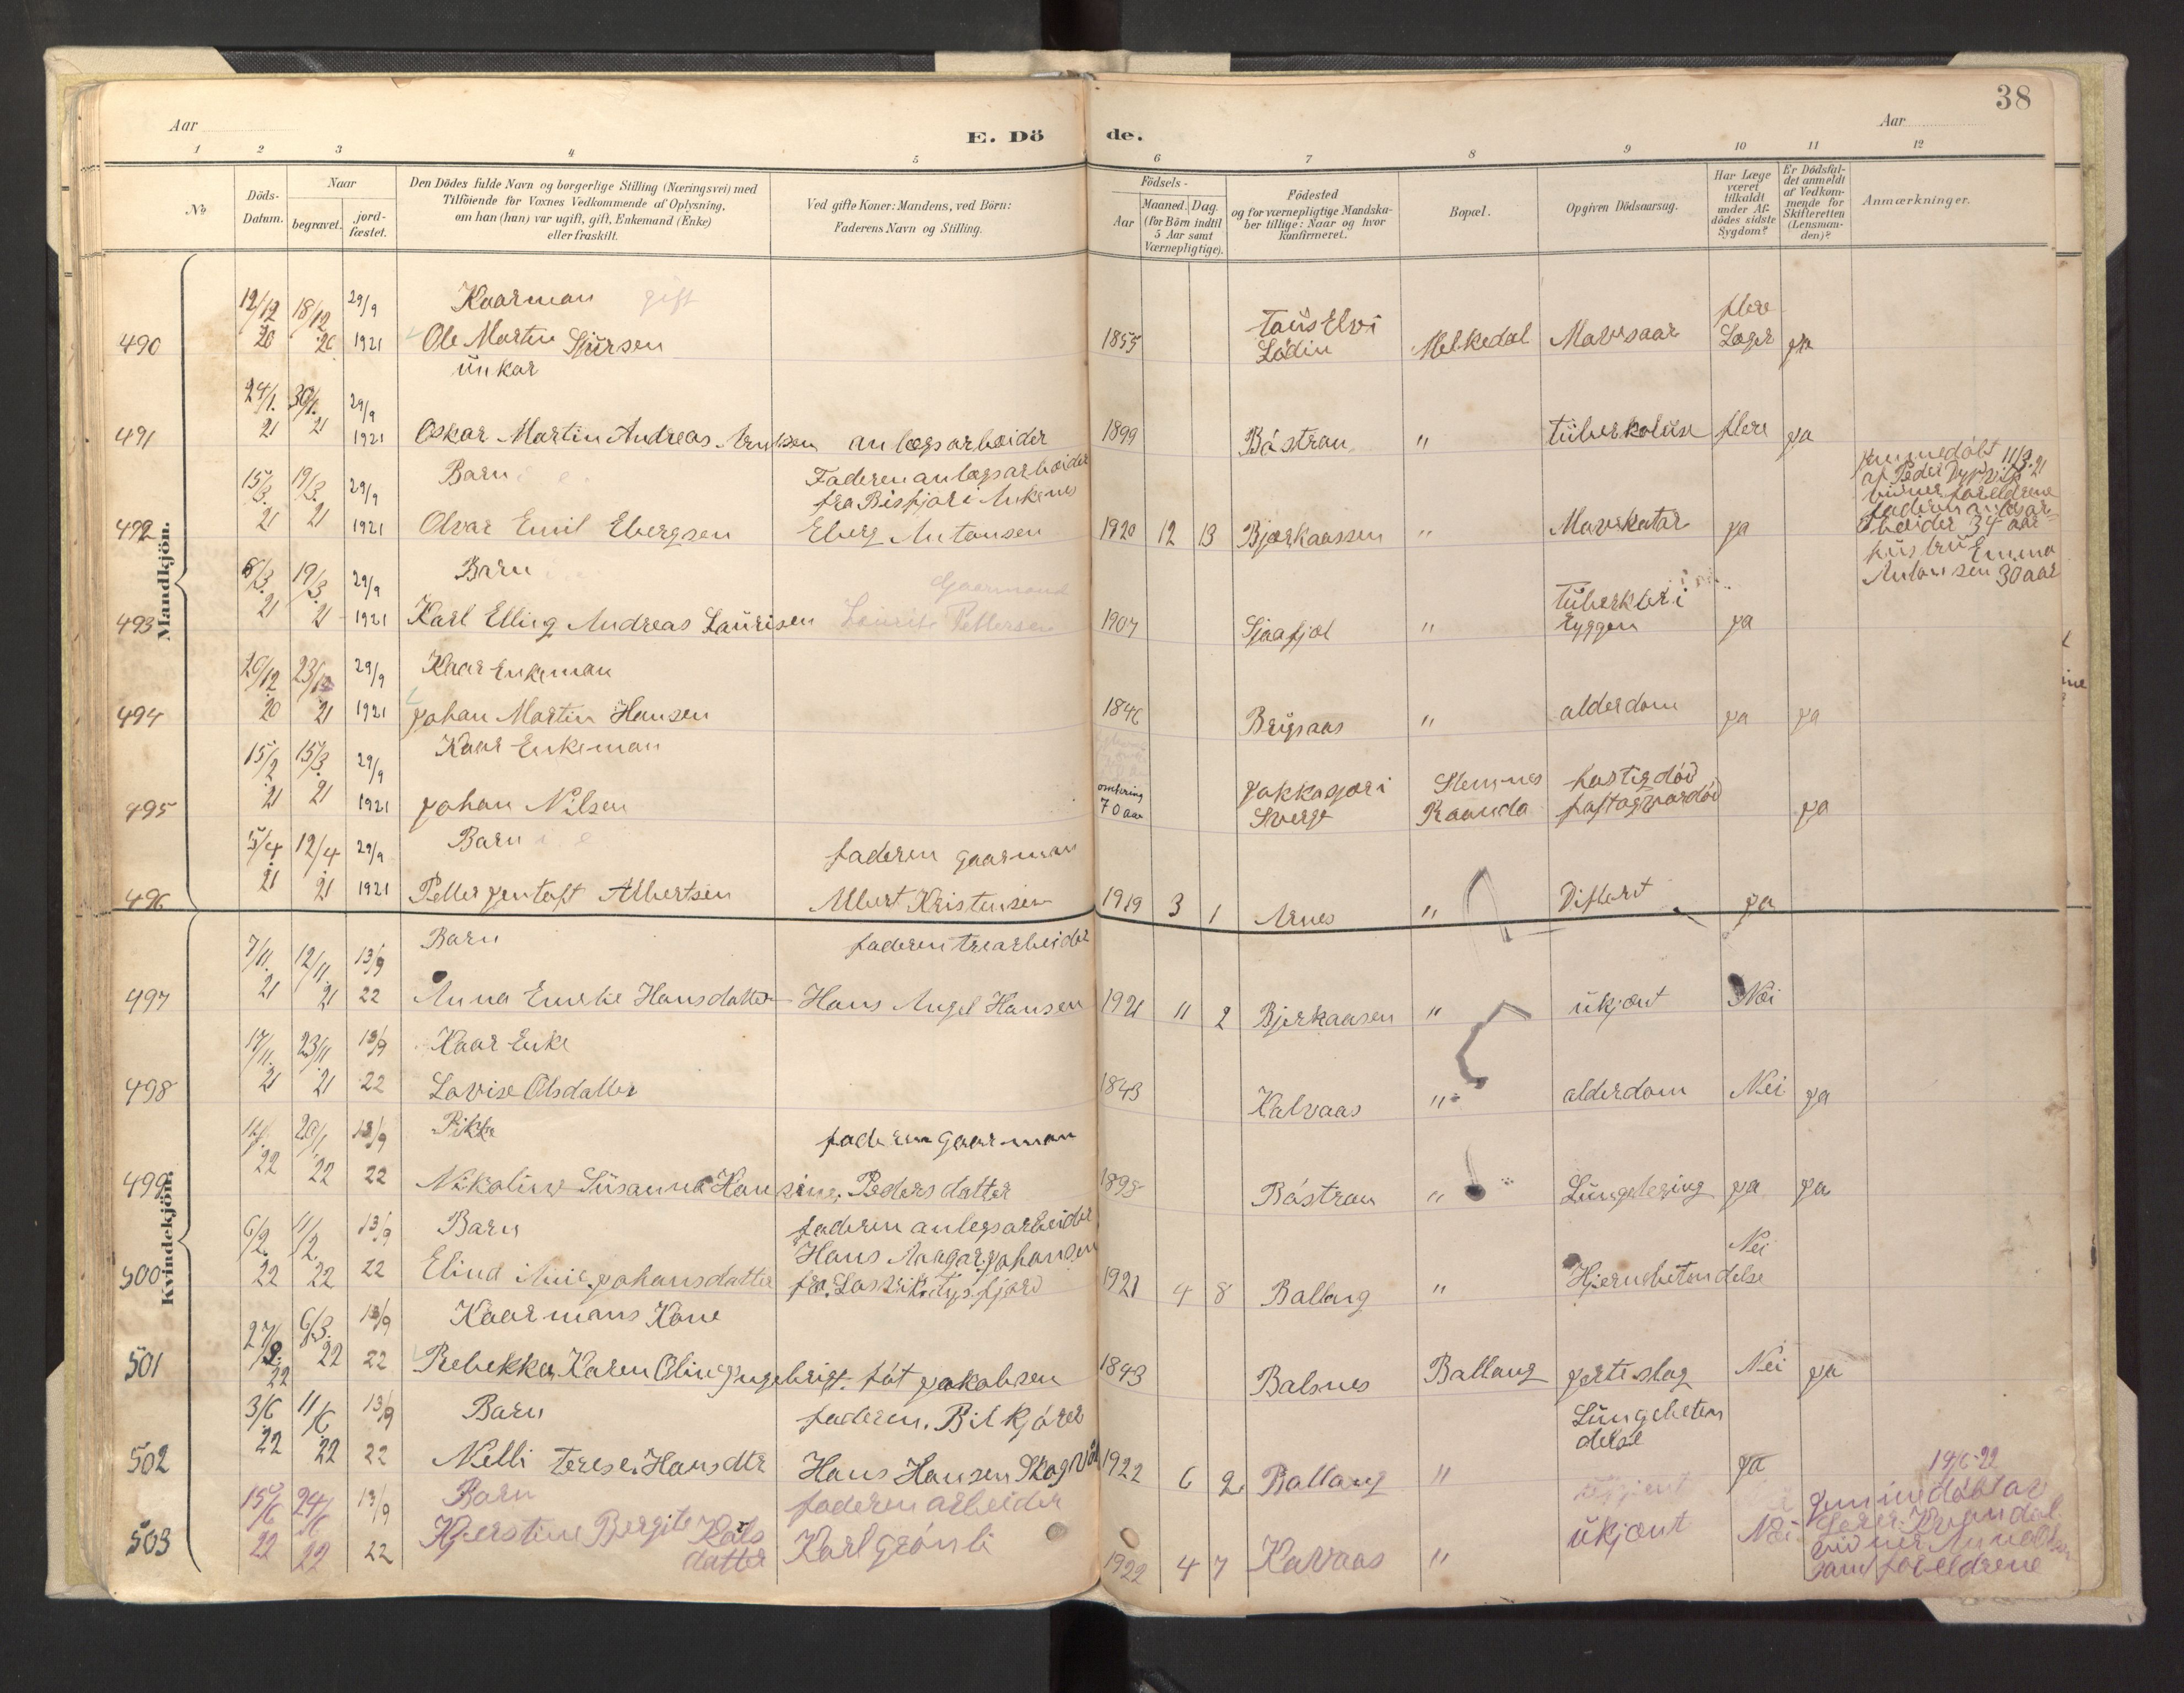 38
Aar
Aar
E. Dö
de.
1 2 3 4 5 6 7 8 9 10 11 12
No
Döds-
Datum.
Naar
begravet.
jord-
fæstet.
Den Dödes fulde Navn og borgerlige Stilling (Næringsvei) med
Tilföiende for Voxnes Vedkommende af Oplysning,
om han (hun) var ugift, gift, Enkemand (Enke)
eller fraskilt.
Ved gifte Koner: Mandens, ved Börn:
Faderens Navn og Stilling.
Födsels-
Aar
Maaned. Dag.
(for Börn indtil
5 Aar samt
Værnepligtige).
Födested
og for værnepligtige Mandska-
ber tillige: Naar og hvor
konfirmeret.
Bopæl.
Opgiven Dödsaarsag.
Har Læge
været
tilkaldt
under Af-
dödes sidste
Sygdom?
Er Dödsfal-
det anmeldt
af Vedkom-
mende for
Skifteretten
(Lensman-
den)?
Anmærkninger.
Mandkjön.
12/12 18/12 29/9 Kaarman gift flere
490 20 20 1921 Ole Martin Sjursen 1855 Lödin Melkedal Mavesaar Læger ja
ünkar
24/1. 30/1. 29/9
491 21 21 1921 Oskar Martin Andreas anlægsarbeider 1899 Båstran " tüberkolüse flere ja
15/3. 19/3. 29/9 Barn Faderen anlægsarbeider
492 21 21 1921 Olvar Emil Ebergsen Eberg Antonsen 1920 12 13 Bjerkaassen " Mavekatar ja
foreldrene
34 aar
hüstrü Emma
Antonsen 30 aar
8/3. 19/3. 29/9 Barn Gaarmand
493 21 21 1921 Karl Elling Andreas Laurisen Laurits Pettersen 1907 Sjaafjel " ryggen ja
20/12 23/12 29/9 Kaar Enkeman
494 20 21 1921 Johan Martin Hansen 1846 " alderdom ja ja
15/2 15/3. 29/9 Kaar Enkeman
495 21 21 1921 Johan Nilsen omkring 70 aar Sverge hastigdöd ja
5/4 12/4 29/9 Barn faderen gaarman
496 21 21 1921 Albertsen Albert Kristensen 1919 3 1 Arnes " ja
Kvindekjön.
7/11. 12/11. 13/9 Barn faderen trearbeider
497 21 21 22 Anna Emelie Hansdatter Hans Angel Hansen 1921 11 2 Bjerkaasen " ükjent Nei
17/11. 23/11 13/9 Kaar Enke
498 21 21 22 Lovise Olsdatter 1843 Kalvaas " alderdom Nei ja
20/1 13/9 Pikke faderen gaarman
499 22 22 22 Nikoline Süsanna Hansine Pedersdatter Båstran " ja ja
6/2. 11/2. 13/9 Barn faderen anlegsarbeider Nei
500 22 22 22 Johansdatter Hans Johansen 1921 4 8 Ballang " Hjernebetendelse
27/2. 6/3. 13/9 Kaarmans Kone
501 22 22 22 Rebekka Karen Oline Ingebrigt. föt Jakobsen 1843 Balsnes Ballang jerteslag Nei ja
3/6 11/6 13/9 Barn faderen. Bilkjörer Lüngebeten
delse
502 22 22 22 Nelli Terese Hansdtr Hans Hansen 1922 6 2 Ballang " ja
15/6 24/6 13/9 Barn faderen arbeider 19/6-22
503 22 22 22 Kjerstine Bergite Karls
datter Karl Grönli 1922 4 7 Kavaas " ükjent Nei
foreldrene